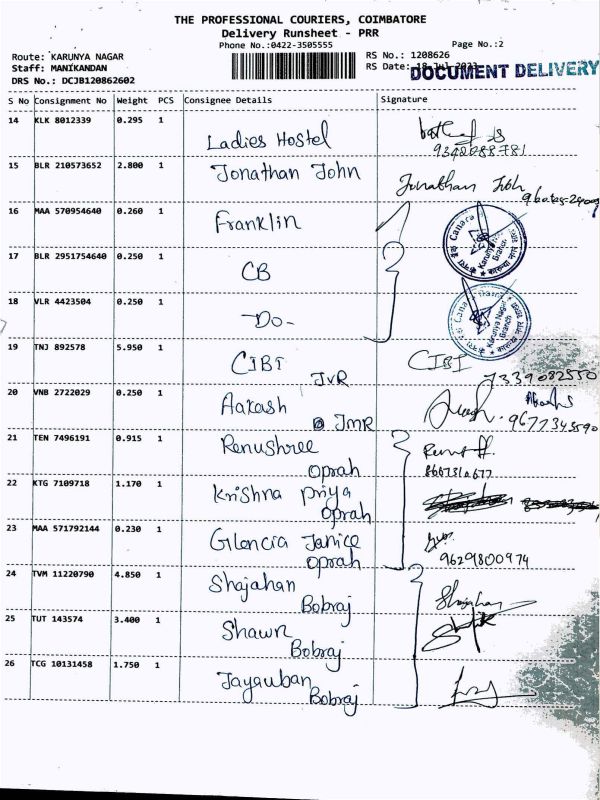 THE PROFESSIONAL COURIERS, COIMBATORE
Delivery Runsheet - PRR
Phone No.:0422-3505555
Page No.:2
Route: KARUNYA NAGAR
RS No.: 1208626
Staff: MANIKANDAN
RS Date: 18 Jul
DOCUMENT DELIVERY
DRS No.: DCJB120862602
S No Consignment No Weight PCS Consignee Details Signature
14 KLK 8012339 0.295 1
Ladies Hostel
15 BLR 210573652 2.800 1
Jonathan John
Jonathan John
16 MAA 570954640 0.260 1
Franklin
Canara
Karunya
Branch
17 BLR 2951754640 0.250 1
CB
18 VLR 4423504 0.250 1
Do-
Canara
Karunya Nagar
Branch
19 TNJ 892578 5.950 1
CIBI CIBI
JVR 7339082550
20 VNB 2722029 0.250 1
Aakash
JMR 9677345590
21 TEN 7496191 0.915 1
Renushree
Oprah
22 KTG 7109718 1.170 1
Krishna Priya
Oprah
23 MAA 571792144 0.230 1
Glencia Janice
Oprah 9629800974
24 TVM 11220790 4.850 1
Shajahan
Bobraj Shajahan
25 TUT 143574 3.400 1
Shawn
Bobraj
26 TCG 10131458 1.750 1
Jayauban
Bobraj